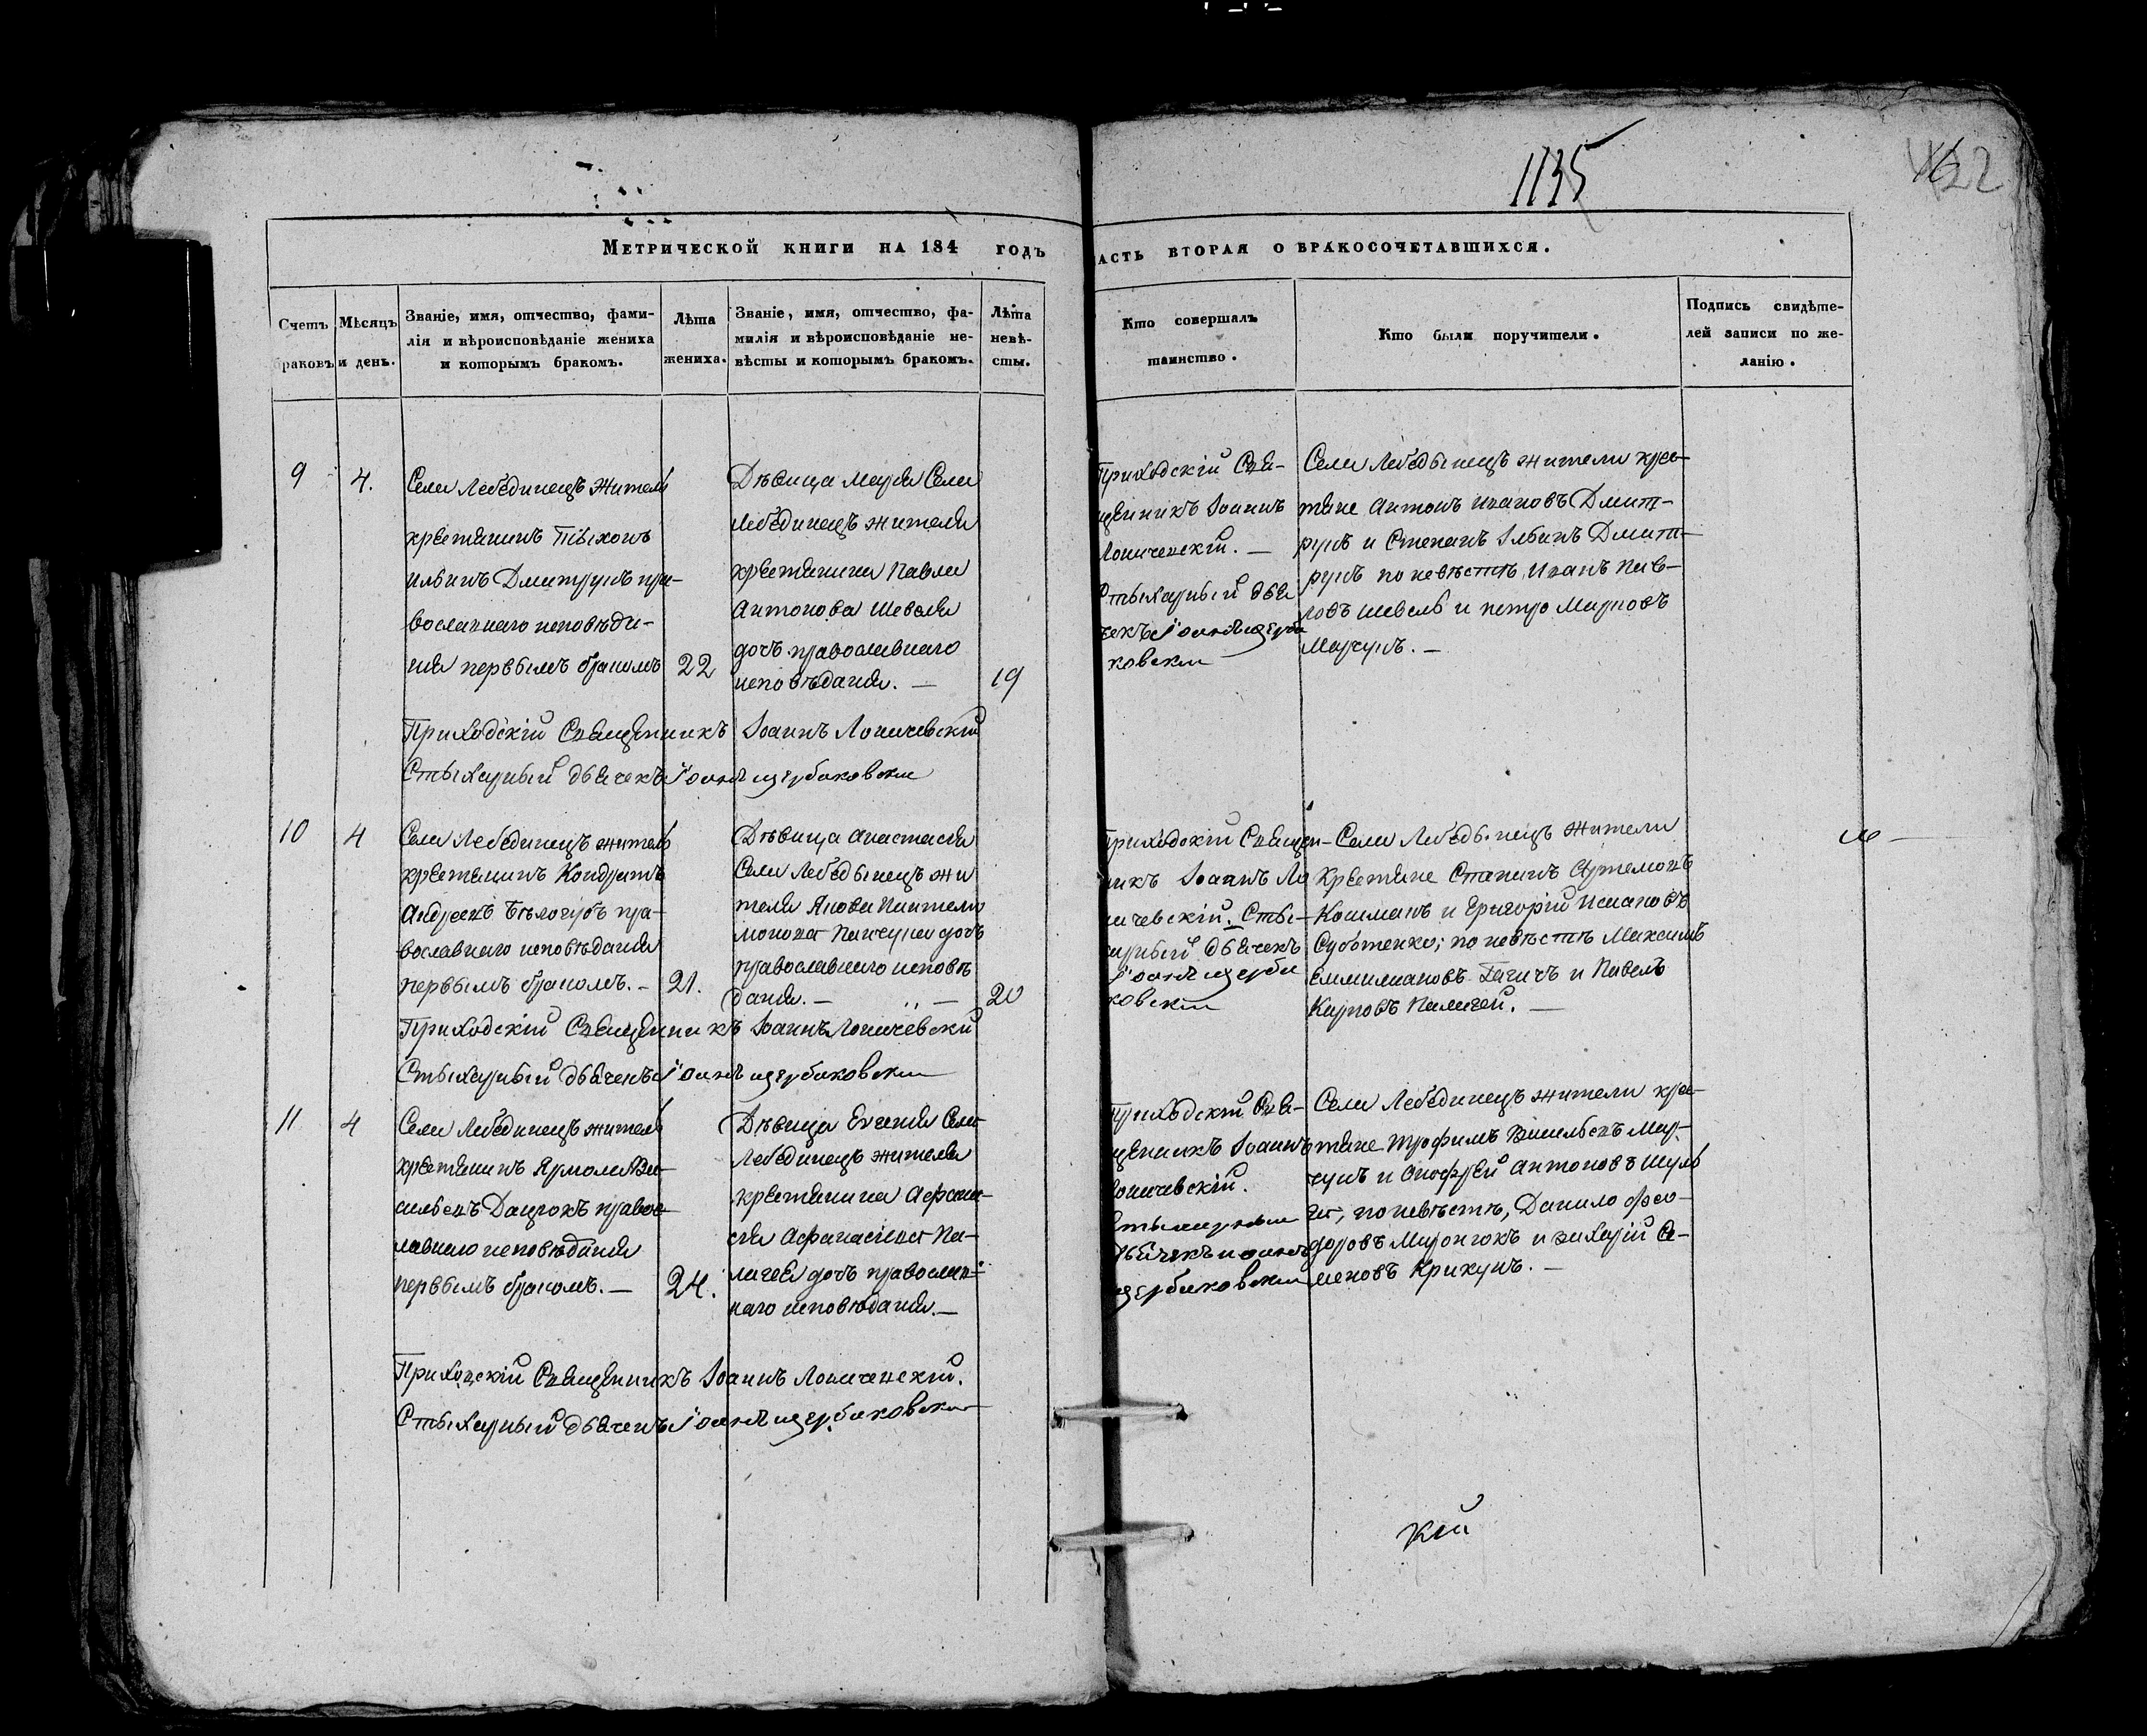 1135
1622
Метрической книги на 184 годъ
асть вторая о бракосочетавшихся.
Счетъ браковъ
Мѣсяцъ и день.
Званіе, имя, отчество, фами-
лія и вѣроисповѣданіе жениха
и которымъ бракомъ.
Лѣта
жениха.
Званіе, имя, отчество, фа-
милія и вѣроисповѣданіе не-
вѣсты и которымъ бракомъ.
Лѣта
невѣ-
сты.
Кто совершалъ
таинство.
Кто были поручители.
Подпись свидѣте-
лей записи по же-
ланію.
9
4.
Села Лебединецъ житель
крестянинъ Тихонъ
ильинъ Дмитрукъ пра-
вославнаго исповѣда-
нія первымъ бракомъ
22
Дѣвица Марія Села
Лебединецъ жителя
крестянина Павла
Антонова Шеваля
дочъ православнаго
исповѣданія. —
19
Приходскій Свя-
щеникъ Іоаннъ
Лопачевскій. —
Стыхарный дья
чекъ Іоаннъ щерба
ковскій
Села Лебедынецъ жители крес-
тяне Антонъ ивановъ Дмит-
рукъ и Степанъ Ільинъ Дмит-
рукъ по невѣстѣ, Иванъ Пав-
ловъ шеваль и петро Марковъ
Марчукъ. —
Приходскій Священникъ Іоаннъ Лопачевскій
Стыхарный дьячекъ Іоаннъ щербаковскій
10
4
Села Лебединецъ житель
крестянинъ Кондратъ
Андреевъ Бѣлочубъ пра-
вославнаго исповѣданія
первымъ бракомъ. —
21.
Дѣвица Анастасія
Села Лебедынецъ жи
теля Якова Пантели
монова дочъ
православнаго исповѣ
данія. —
20
Приходскій Священ-
никъ Іоаннъ Ло
пачевскій. Сты-
харный дьячекъ
Іоаннъ щерба
ковскій
Села Лебедынецъ жители
Крестяне Артемовъ
Кошманъ и Григорій
Суботенко; по невѣстѣ Максимъ
и Павелъ
Карповъ Паличей. —
Приходскій Священникъ Іоаннъ Лопачевскій
Стыхарный дьячекъ Іоаннъ щербаковскій
11
4
Села Лебединецъ житель
крестянинъ Ярмола Ва-
сильевъ Дацюкъ право-
лавнаго исповѣданія
первымъ бракомъ. —
24.
Дѣвица Евгенія Села
Лебединецъ жителя
крестянина Афана-
сія Афанасіева Па-
личея дочъ православ-
наго исповѣданія. —
Приходскій Свя-
щеникъ Іоаннъ
Лопачевскій.
Стыхарный
Дьячекъ иоаннъ
щербаковскій
Села Лебединецъ жители крес-
тяне Трофимъ Васильевъ Мар-
чукъ и Онофрей Антоновъ Шуль
га, по невѣстѣ, Данило Фео-
доровъ Миронюкъ и захарій Се-
меновъ Крикунъ. —
Приходскій Священникъ Іоаннъ Лопачевскій.
Стыхарный дьячекъ Іоаннъ щербаковскій
кій